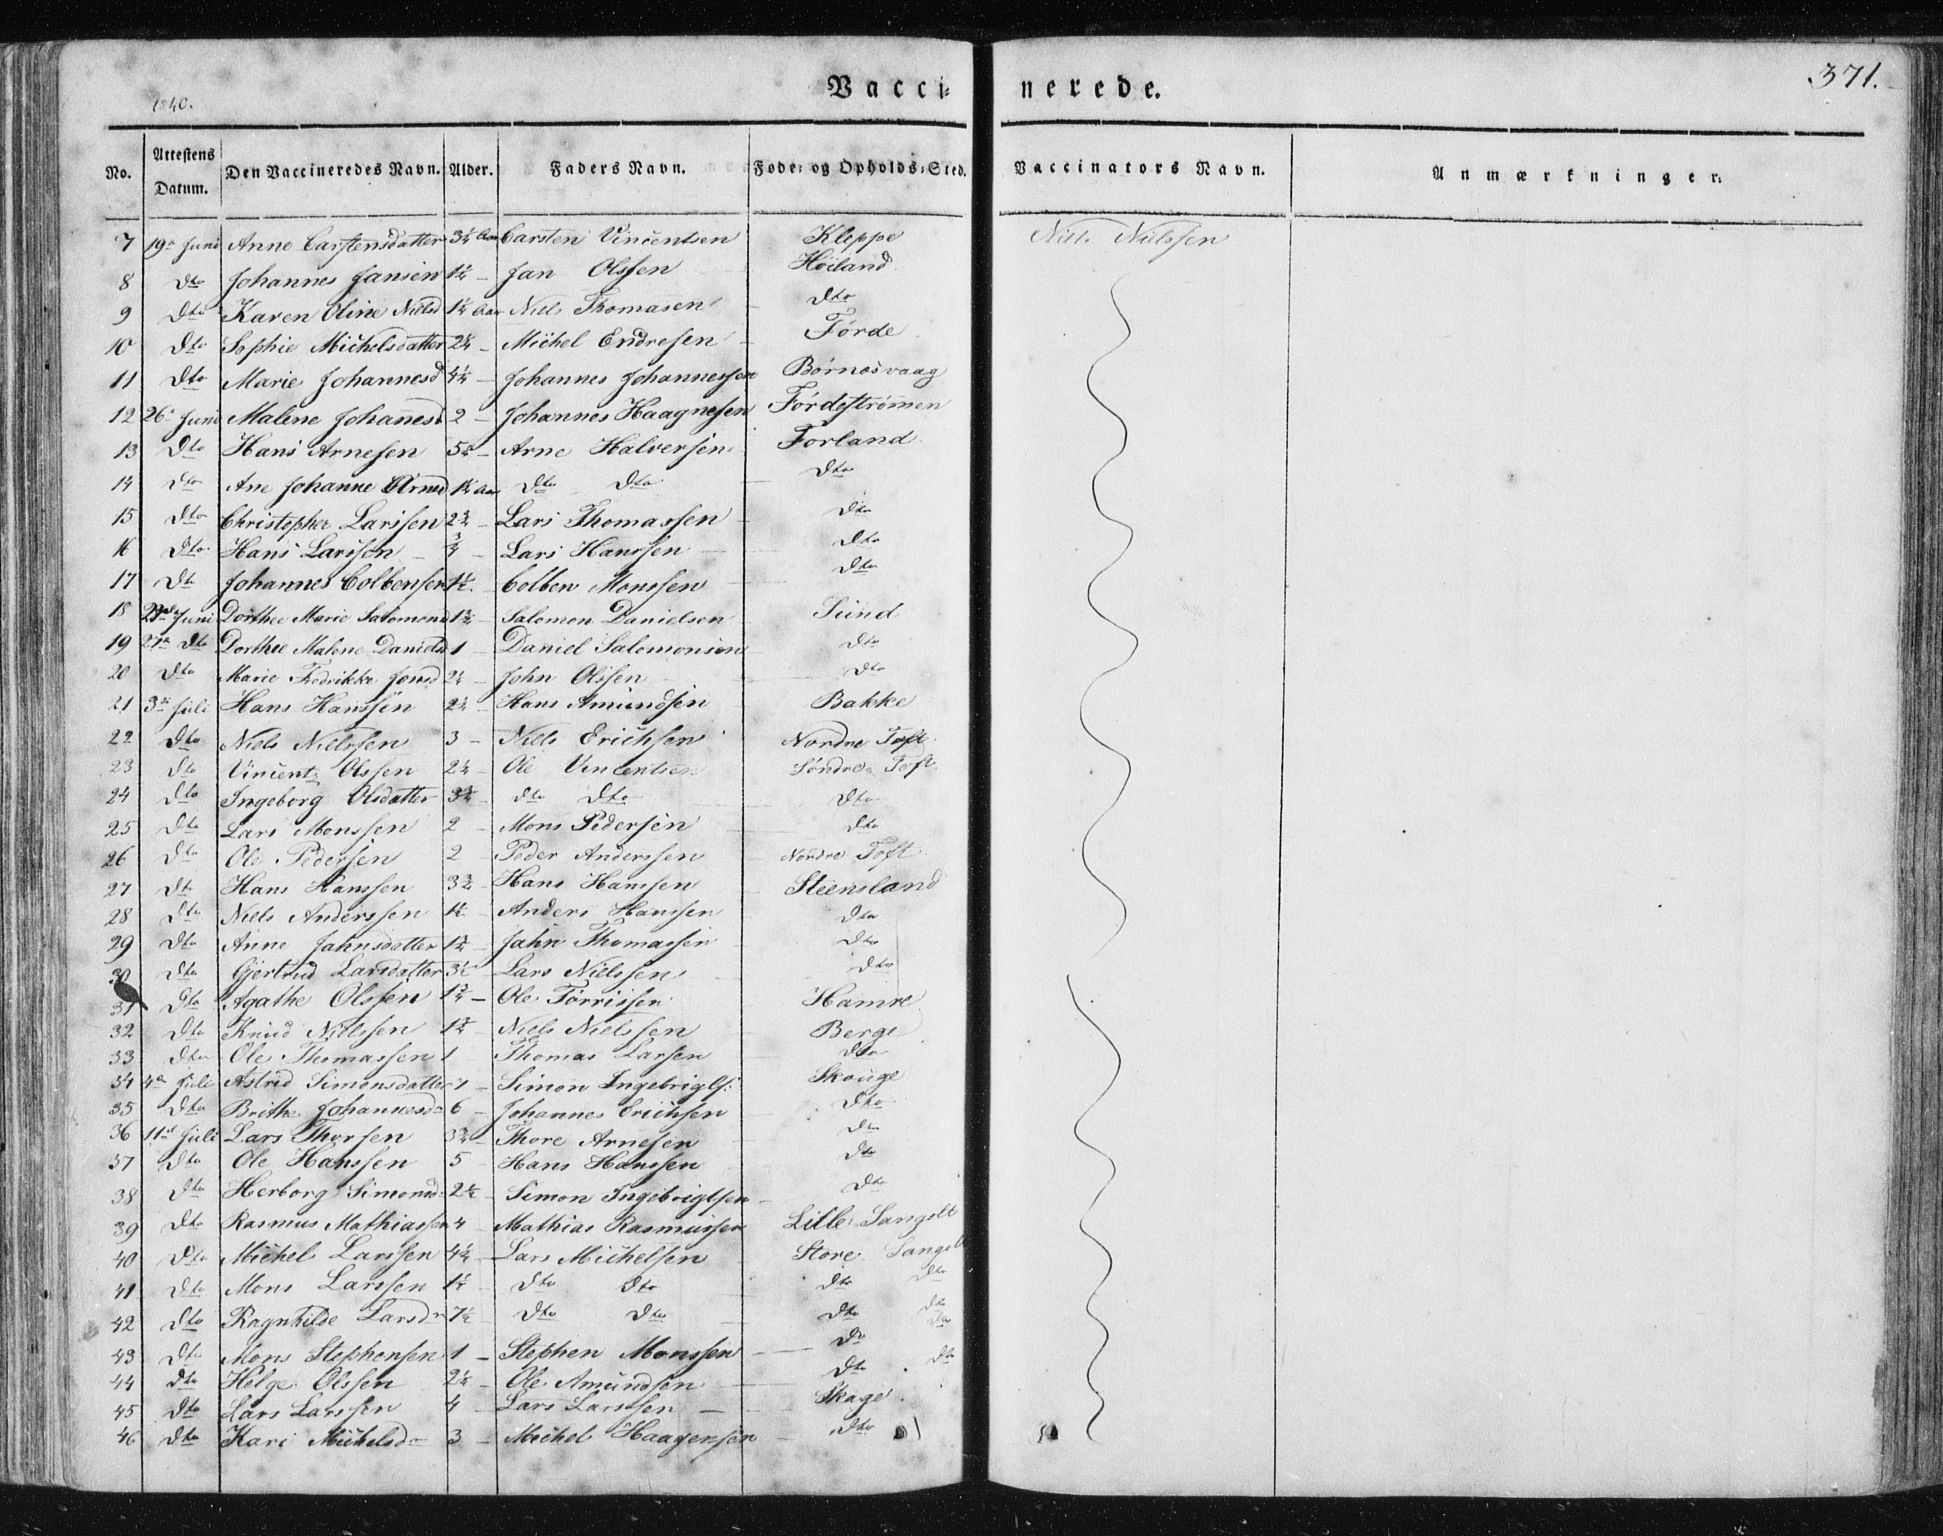 371.
1840.
Vacci- nerede.
No. Attestens Datum. Den Vaccineredes Navn. Alder. Faders Navn. Føde- og Opholds-Sted. Vaccinators Navn. Anmærkninger.
7 19de Juni Anne Carstensdatter 3¼ Aar Carsten Vincentsen Kleppe Niels Nielssen
8 Dto Johannes Jansen Jan Olssen Høiland
9 Dto Karen Oline Nielsd Aar Niels Thomasen Dto
10 Dto Sophie Michelsdatter 2¼ Michel Endresen Førde
11 Dto Marie Johannesd 4¼ Johannes Johannessen Børnesvaag
12 26de Juni Malene Johanesd 2 - Johannes Haagnesen Førdestrømen
13 Dto Hans Arnesen Arne Halversen Forland
14 Dto Ane Johanne Arnsd Aar Dto Dto Dto
15 Dto Christopher Larssen 2¾ - Lars Thomassen Dto
16 Dto Hans Larssen - ¾ - Lars Hanssen Dto
17 Dto Johannes Colbensen Colben Monssen Dto
18 Juni Dorthee Marie Salomonsd Salomon Danielsen Sund
19 27de Dto Dorthee Malene Danielsd 1 - Daniel Salomonsen Dto
20 Dto Marie Fredrikke Jonsd 2¼ - John Olssen Dto
21 3de Juli Hans Hanssen 2¼ - Hans Amundsen Bakke
22 Dto Niels Nielssen 3 - Niels Erichsen Nordre Toft
23 Dto Vincent Olssen 2¼ - Ole Vincentsen Søndre Toft
24 Dto Ingeborg Olsdatter 3¾ - Dto Dto Dto
25 Dto Lars Monssen 2 - Mons Pedersen Dto
26 Dto Ole Pedersen 2 - Peder Anderssen Nordre Toft
27 Dto Hans Hanssen 3¾ - Hans Hanssen Steensland
28 Dto Niels Anderssen Anders Hanssen Dto
29 Dto Anne Jahnsdatter 1¾ - Jahn Thomassen Dto
30 Dto Gjertrud Larsdatter 3½ - Lars Nielssen Dto
31 Dto Agathe Olssen Ole Torrissen Hamre
32 Dto Knud Nielssen 1¾ - Niels Nielssen Berge
33 Dto Ole Thomassen 1 Thomas Larsen Dto
34 4de Juli Astrid Simonsdatter Simon Ingebrigts: Skouge
35 Dto Brithe Johannesdr 6 - Johannes Erichsen Dto
36 11te Juli Lars Thorsen 3¾ - Thore Arnesen Dto
37 Dto Ole Hanssen 5 - Hans Hanssen Dto
38 Dto Herborg Simonsd: 2½ - Simon Ingebrigtsen Dto
39 Dto Rasmus Mathiassen 4 - Mathias Rasmussen Lille Sangolt
40 Dto Michel Larssen 4¼ - Lars Michelsen Store Sangolt
41 Dto Mons Larssen Dto Dto Dto Dto
42 Dto Ragnhilde Larsdr 7½ - Dto Dto Dto Dto
43 Dto Mons Stephensen 1 - Stephen Monssen Do Do
44 Dto Helge Olssen 2¼ - Ole Amundsen Dto Dto
45 Dto Lars Larssen 4 - Lars Larssen Skage
46 Dto Kari Michelsdr 3 - Michel Haagensen Dto